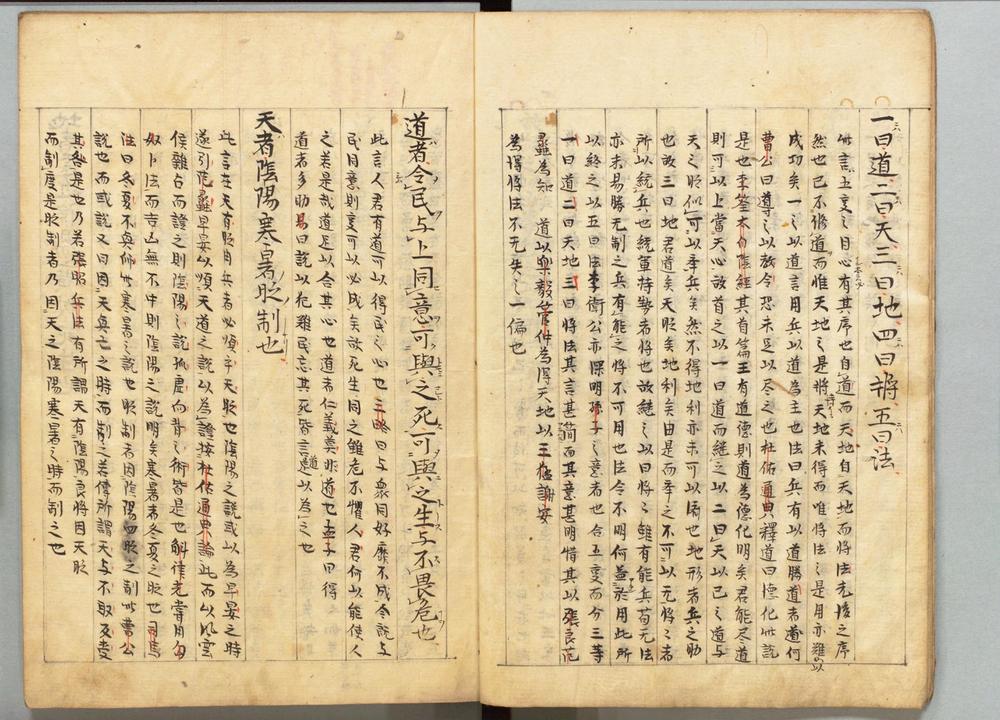 一曰道二曰天三曰地四曰將五曰法
此言五事之目心有其序也自道而天地自天地而將法先後之序
然也已不修道而惟天地之是將天地未得而唯將法之是用亦難以
成功矣一之以道言用兵以道為主也法曰兵有以道勝道者道何
曹公曰導之以政令恐未足以尽之也杜佑通典釋道曰德化此説
是也李筌太白陰經其首篇王有道德則道為德化明矣君能尽道
則可以上當天心故首之以一曰道而継之以二曰天以已之道与
天之時似可以牽兵矣然不得地利亦未可以済也地形者兵之助
也故三曰地君道矣天時矣地利矣由是而牽之不可以无將之者
所以統兵也統軍持勢者將也故継之以曰將之雖有能兵苟无法
亦未易勝无制之兵有能之將不可用也法令不明何益於用此所
以終之以五曰法李衛公亦深明孫子之意者也合五事而分三等
一曰道二曰天地三曰將法其言甚簡而其意甚明惜其以張良范
蠡為知道以樂毅管仲為得天地以王猛謝安
為得將法不无失之一偏也
道者令民与上同意可與之死可與之生与不畏危也
此言人君有道可以得民之心也三略曰与衆同好靡不成令説与
民同意則事可以必成矣故死生同之雖危不懼人君何以能使人
之若是哉道足以合其心也道者仁義美非道也孟子曰得
道者多助易曰説以犯難民忘其死皆言道以為之也
天者陰陽寒暑時制也
此言在天有時用兵者必順乎天時也陰陽之説或以為早晏之時
遂引范蠡早晏以順天道之説以為證按杜佑通典論此而以風雲
侯雜占而證之則陰陽之説孤虚向背之術皆是也斛律光嘗用匈
奴卜法而吉凶無不中則陰陽之説明矣寒暑者冬夏之時也司馬
法曰冬夏不興師此寒暑之説也時制者因陰陽四時之制此曹公
説也而或説又曰因天興亡之時而制之若傳所謂天与不取反受
其咎是也乃若張昭兵法有所謂天有陰陽良將因天時
而制度是時制者乃因天之陰陽寒暑之時而制之也